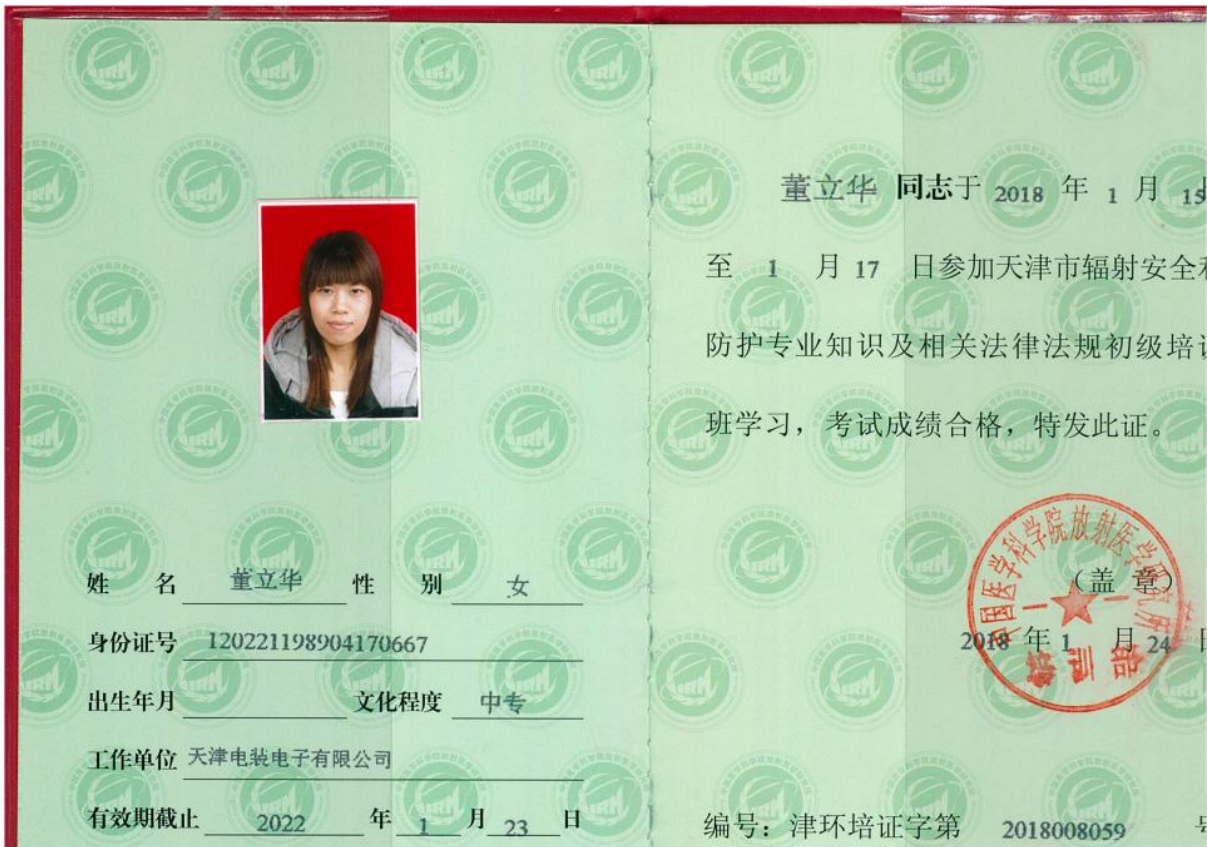 姓 名 董立华 性 别 女
身份证号 120221198904170667
出生年月 文化程度 中专
工作单位 天津电装电子有限公司
有效期截止 2022 年 1 月 23 日
董立华 同志于 2018 年 1 月 15
至 1 月 17 日参加天津市辐射安全
防护专业知识及相关法律法规初级培
班学习，考试成绩合格，特发此证。
中国医学科学院放射医学研究所
（盖 章）
2018 年 1 月 24
培训部
编号：津环培证字第 2018008059